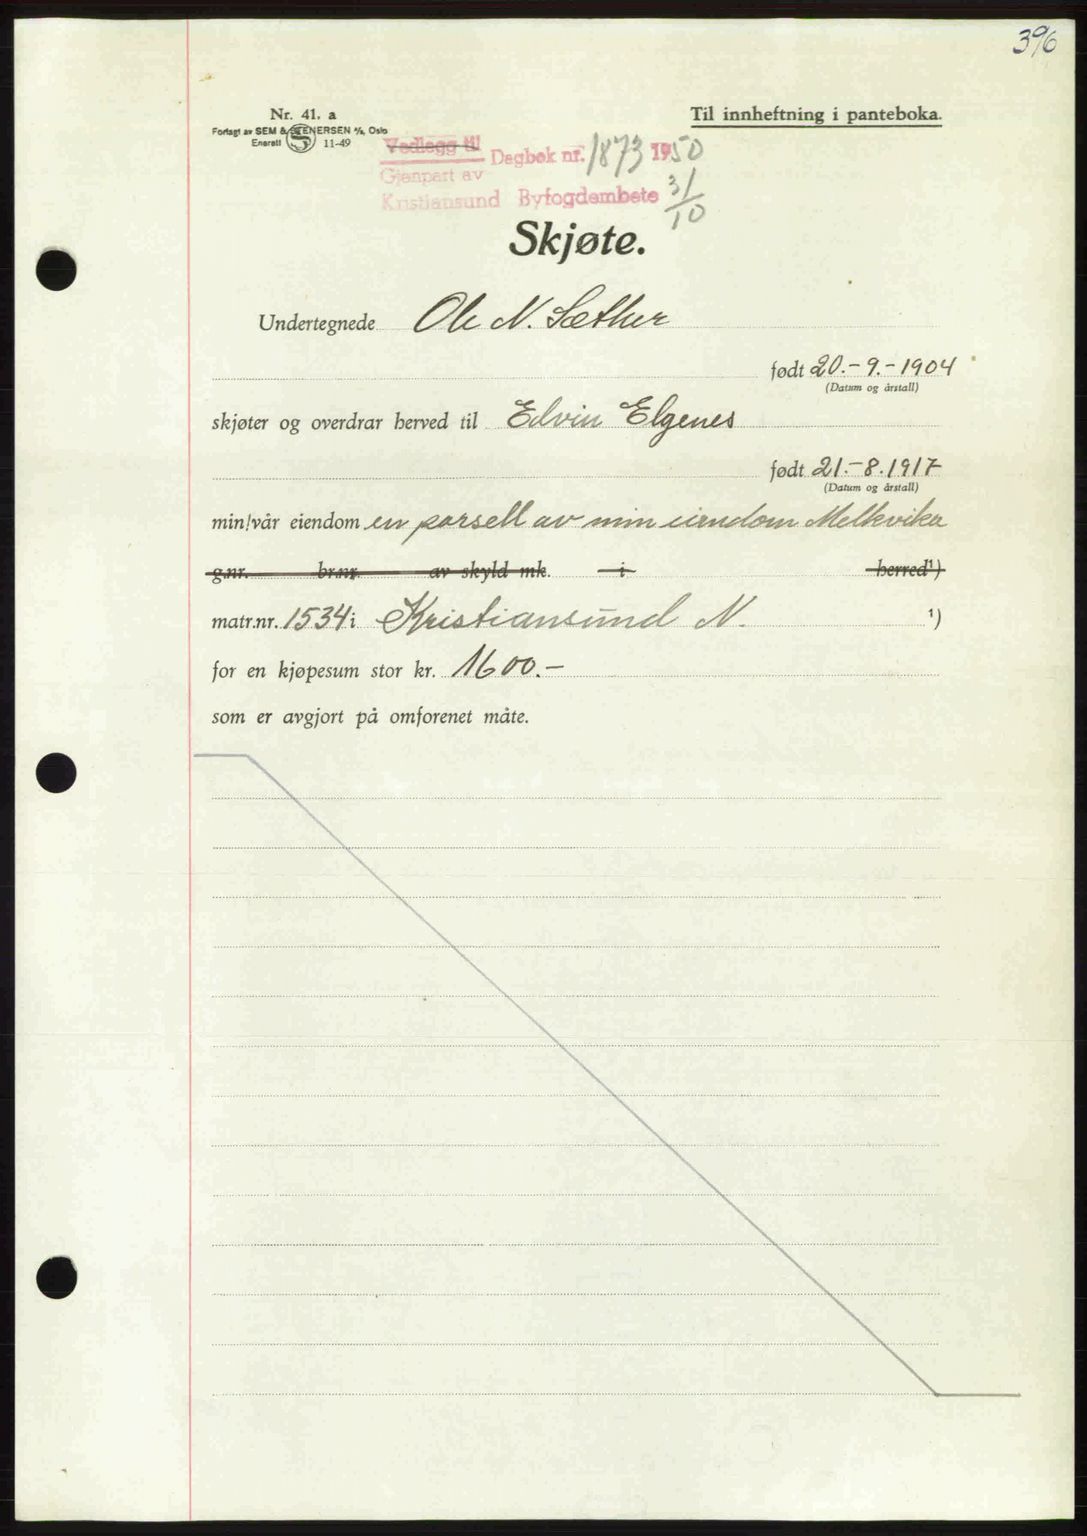 396
Nr. 41. a
Til innheftning i panteboka.
Forlagt av SEM & STENERSEN A/S, Oslo
Enerett 11-49
Vedlegg til
Dagbok nr. 1873 1950
Gjenpart av
Kristiansund Byfogdembete 31/10
Skjøte.
Undertegnede Ole N. Sæther
født 20.-9.-1904
(Datum og årstall)
skjøter og overdrar herved til Edvin Elgenes
født 21.-8.1917
(Datum og årstall)
min/vår eiendom en parsell av min eiendom Melkvika
g.nr. br.nr. av skyld mk. i herred¹)
matr.nr. 1534 i Kristiansund N. ¹)
for en kjøpesum stor kr. 1600.-
som er avgjort på omforenet måte.